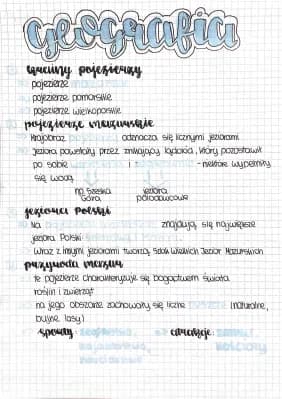 geografia
krainy pojezierzy
pojezierze
pojezierze pomorskie
pojezierze wielkopolskie
pojezierze mazurskie
Krajobraz odznacza się licznymi jeziorami
Jeziora powstały przez znikający lądolód, który pozostawił
po sobie i - niektóre wypełniły
się wodą
np. Szeska Góra, jeziora polodowcowe
jeziora Polski
Na znajdują się największe
jeziora Polski
Wraz z innymi jeziorami tworzą Szlak Wielkich Jezior Mazurskich
przyroda mazur
te pojezierze charakteryzuje się bogactwem świata
roślin i zwierząt
na jego obszarze zachowały się liczne (naturalne,
bujne lasy)
sporty: atrakcje:
kościoły